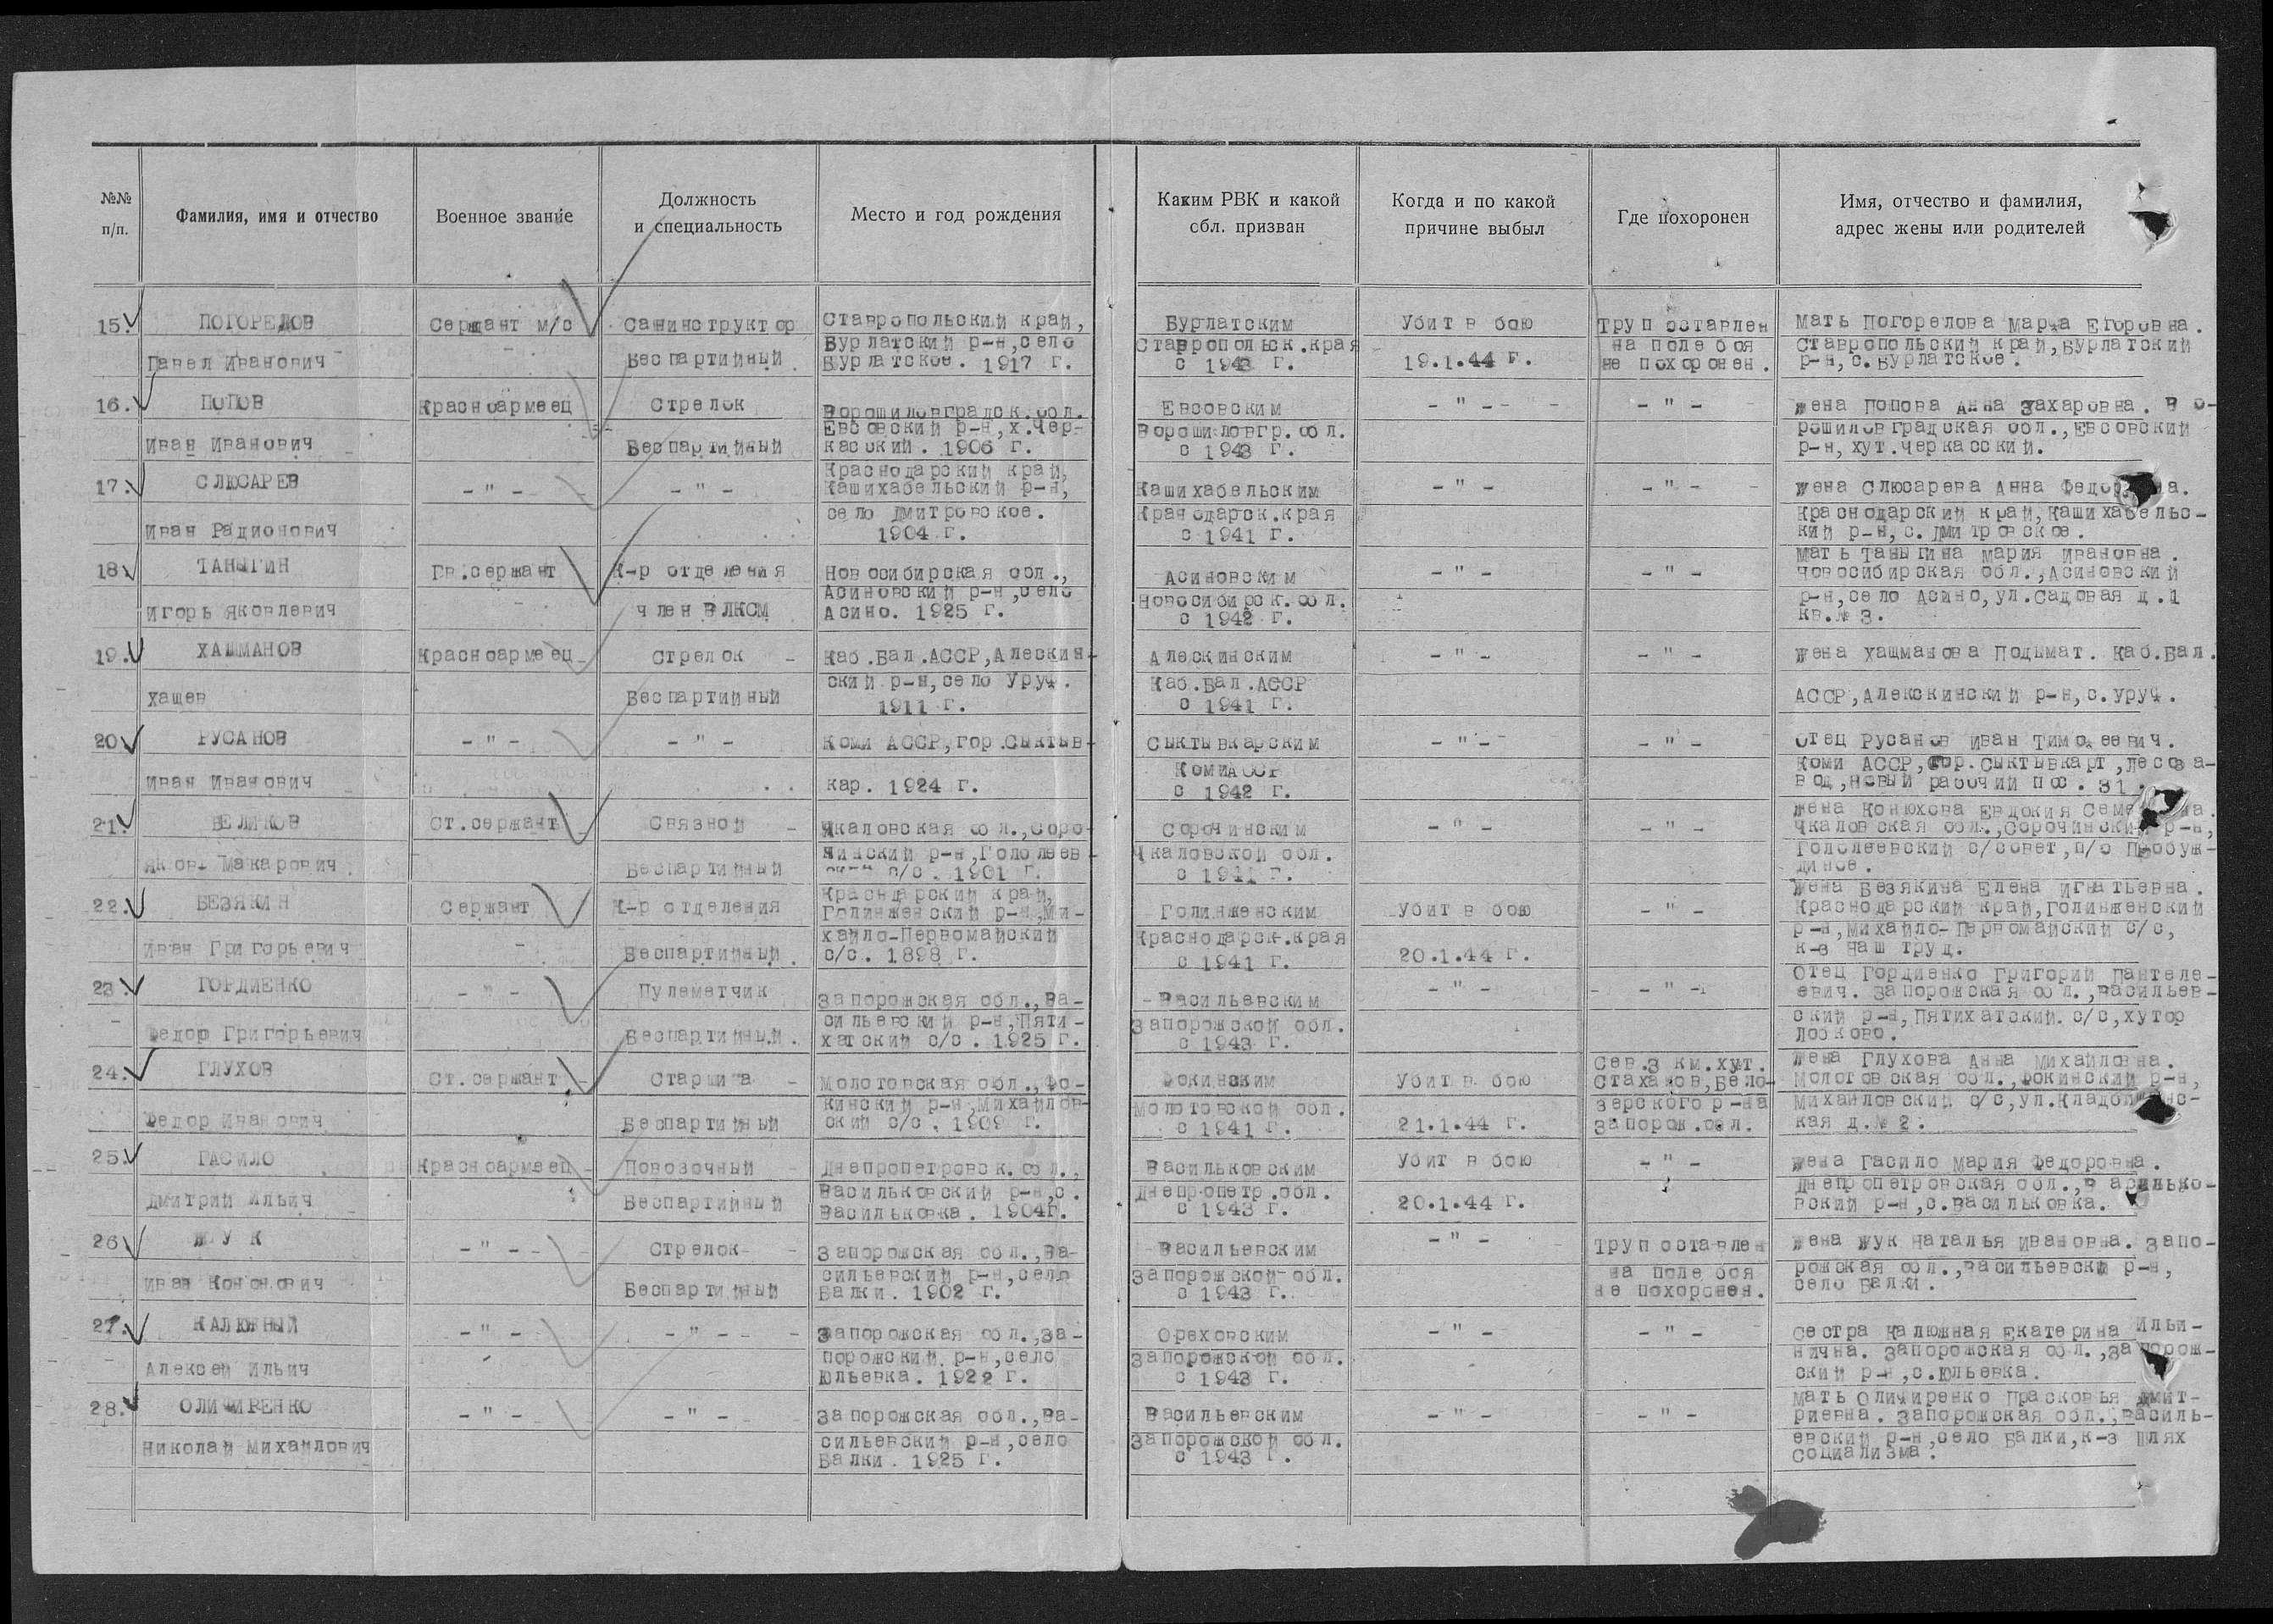 №№ п/п.
Фамилия, имя и отчество
Военное звание
Должность и специальность
Место и год рождения
Каким РВК и какой обл. призван
Когда и по какой причине выбыл
Где похоронен
Имя, отчество и фамилия, адрес жены или родителей
15. ПОГОРЕЛОВ
Павел Иванович
Сержант м/с
Санинструктор
Беспартийный
Ставропольский край,
Бурлатский р-н, село
Бурлатское. 1917 г.
Бурлатским
Ставропольск.края
с 1943 г.
Убит в бою
19.1.44 г.
Труп оставлен
на поле боя
не похоронен.
Мать Погорелова Марфа Егоровна.
Ставропольский край, Бурлатский
р-н, с. Бурлатское.
16. ПОПОВ
Иван Иванович
Красноармеец
Стрелок
Беспартийный
Ворошиловградск.обл.
Евсовский р-н, х. Чер-
касский. 1906 г.
Евсовским
Ворошиловгр. обл.
с 1943 г.
- " -
- " -
Жена Попова Анна Захаровна. Во-
рошиловградская обл., Евсовский
р-н, хут. Черкасский.
17. СЛЮСАРЕВ
Иван Радионович
- " -
- " -
Краснодарский край,
Кашихабельский р-н,
село Дмитровское.
1904 г.
Кашихабельским
Кранодарск.края
с 1941 г.
- " -
- " -
Жена Слюсарева Анна
Краснодарский край, Кашихабельс-
кий р-н, с. Дмитровское.
18. ТАНЫГИН
Игорь Яковлевич
Гв.сержант
К-р отделения
член ВЛКСМ
Новосибирская обл.,
Асиновский р-н, село
Асино. 1925 г.
Асиновским
Новосибирск. обл.
с 1942 г.
- " -
- " -
Мать Таныгина Мария Ивановна.
Новосибирская обл., Асиновский
р-н, село Асино, ул. Садовая д. 1
кв. № 3.
19. ХАШМАНОВ
Хашев
Красноармеец
Стрелок
Беспартийный
Каб.Бал.АССР, Алескин-
ский р-н, село Уруф.
1911 г.
Алескинским
Каб.Бал.АССР
с 1941 г.
- " -
- " -
Жена Хашманова Подымат. Каб.Бал.
АССР, Алекскинский р-н, с. Уруф.
20. РУСАНОВ
Иван Иванович
- " -
- " -
Коми АССР, гор. Сыктыв-
кар. 1924 г.
Сыктывкарским
Коми АССР
с 1942 г.
- " -
- " -
Отец Русанов Иван Тимофеевич.
Коми АССР, гор. Сыктывкарт, лесоза-
вод, новый рабочий пос. 31.
21. ВЕЛИКОВ
Яков Макарович
Ст.сержант
Связной
Беспартийный
Чкаловская обл., Соро-
чинский р-н, Гололеев-
ский с/с. 1901 г.
Сорочинским
Чкаловской обл.
с 1941 г.
- " -
- " -
Жена Конюхова Евдокия
Чкаловская обл., Сорочинский р-н,
Гололеевский с/совет, п/о Пробуж-
диное.
22. БЕЗЯКИН
Иван Григорьевич
Сержант
К-р отделения
Беспартийный
Красндарский край,
Голинженский р-н, Ми-
хайло-Первомайский
с/с. 1898 г.
Голинженским
Краснодарск.края
с 1941 г.
Убит в бою
20.1.44 г.
- " -
Жена Безякина Елена Игнатьевна.
Краснодарский край, Голинженский
р-н, Михайло-Первомайский с/с,
к-з Наш труд.
23. ГОРДИЕНКО
Федор Григорьевич
- " -
Пулеметчик
Беспартийный.
Запорожская обл., Ва-
сильевский р-н, Пяти-
хатский с/с. 1925 г.
Васильевским
Запорожской обл.
с 1943 г.
- " -
- " -
Отец Гордиенко Григорий Пантеле-
евич. Запорожская обл., Васильев-
ский р-н, Пятихатский. с/с, хутор
Лосково.
24. ГЛУХОВ
Федор Иванович
Ст.сержант
Старшина
Беспартийный
Молотовская обл., Фо-
кинский р-н, Михайлов-
ский с/с. 1909 г.
Фокинским
Молотовской обл.
с 1941 г.
Убит в бою
21.1.44 г.
Сев.3 км.хут.
Стаханов, Бело-
зерского р-на
Запорож.обл.
Жена Глухова Анна Михайловна.
Молотовская обл., Фокинский р-н,
Михайловский с/с, ул.
кая д. № 2.
25. ГАСИЛО
Дмитрий Ильич
Красноармеец
Повозочный
Беспартийный
Днепропетровск. обл.,
Васильковский р-н, с.
Васильковка. 1904г.
Васильковским
Днепропетр.обл.
с 1943 г.
Убит в бою
20.1.44 г.
- " -
Жена Гасило Мария Федоровна.
Днепропетровская обл., Василько-
вский р-н, с. Васильковка.
26. ЖУК
Иван Кононович
- " -
Стрелок
Беспартийный
Запорожская обл., Ва-
сильевский р-н, село
Балки. 1902 г.
Васильевским
Запорожской обл.
с 1943 г.
- " -
Труп оставлен
на поле боя
не похоронен.
Жена Жук Наталья Ивановна. Запо-
рожская обл., Васильевски р-н,
село Балки.
27. КАЛЮЖНЫЙ
Алексей Ильич
- " -
- " -
Запорожская обл., За-
порожский р-н, село
Юльевка. 1922 г.
Ореховским
Запорожской обл.
с 1943 г.
- " -
- " -
Сестра Калюжная Екатерина Ильи-
нична. Запорожская обл., Запорож-
ский р-н, с. Юльевка.
28. ОЛИФИРЕНКО
Николай Михайлович
- " -
- " -
Запорожская обл., Ва-
сильевский р-н, село
Балки. 1925 г.
Васильевским
Запорожской обл.
с 1943 г.
- " -
- " -
Мать Олифиренко Прасковья Дмит-
риевна. Запорожская обл., Василь-
евский р-н, село Балки, к-з Шлях
Социализма.